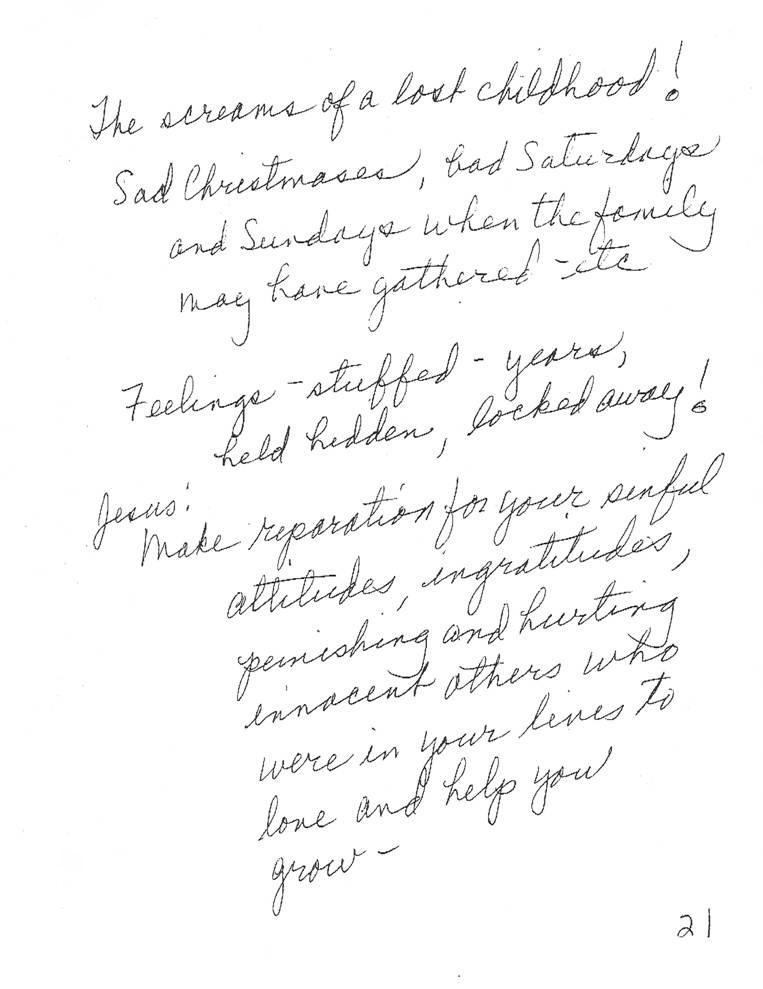 The screams of a lost childhood!
Sad Christmases, bad Saturdays
and Sundays when the family
may have gathered - etc
Feelings - stuffed - years,
held hidden, locked away!
Jesus:
Make reparation for your sinful
attitudes, ingratitudes,
punishing and hurting
innocent others who
were in your lives to
love and help you
grow -
21